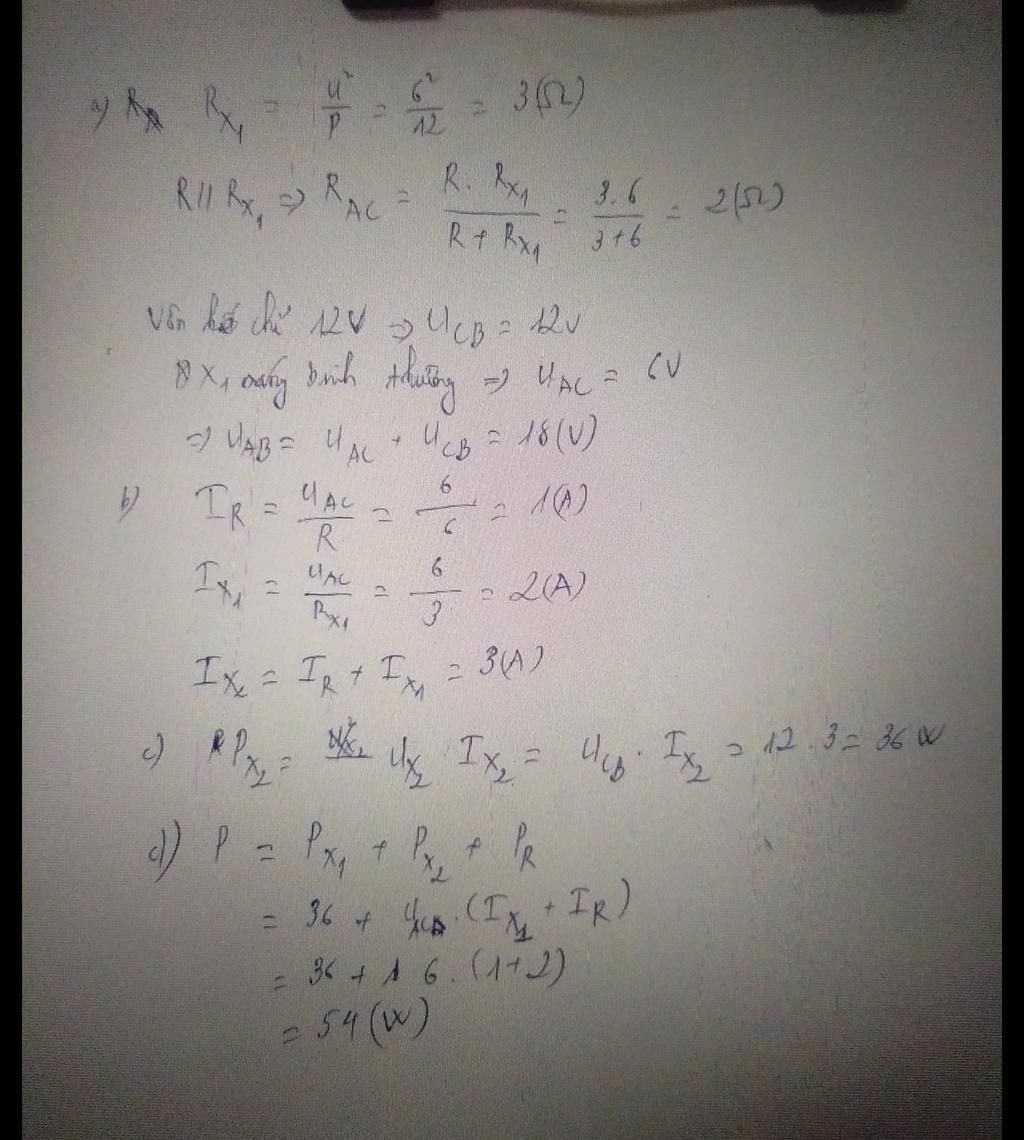 a) R_X₁ = U²/P = 6²/12 = 3(Ω)
R // R_X₁ => R_AC = (R . R_X₁)/(R + R_X₁) = (3.6)/(3+6) = 2(Ω)
Vôn kế chỉ 12V => U_CB = 12V
X₁ sáng bình thường => U_AC = 6V
=> U_AB = U_AC + U_CB = 18(V)
b) I_R = U_AC/R = 6/6 = 1(A)
I_X₁ = U_AC/R_X₁ = 6/3 = 2(A)
I_X₂ = I_R + I_X₁ = 3(A)
c) P_X₂ = U_X₂ I_X₂ = U_CB . I_X₂ = 12 . 3 = 36 W
d) P = P_X₁ + P_X₂ + P_R
= 36 + U_AC . (I_X₁ + I_R)
= 36 + 6 . (1+2)
= 54 (W)